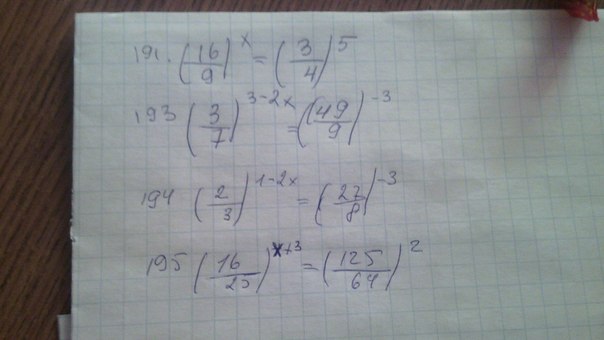 191. (16/9)^x = (3/4)^5
193 (3/7)^3-2x = ((49/9)^-3
194 (2/3)^1-2x = (27/8)^-3
195 (16/25)^x+3 = (125/64)^2